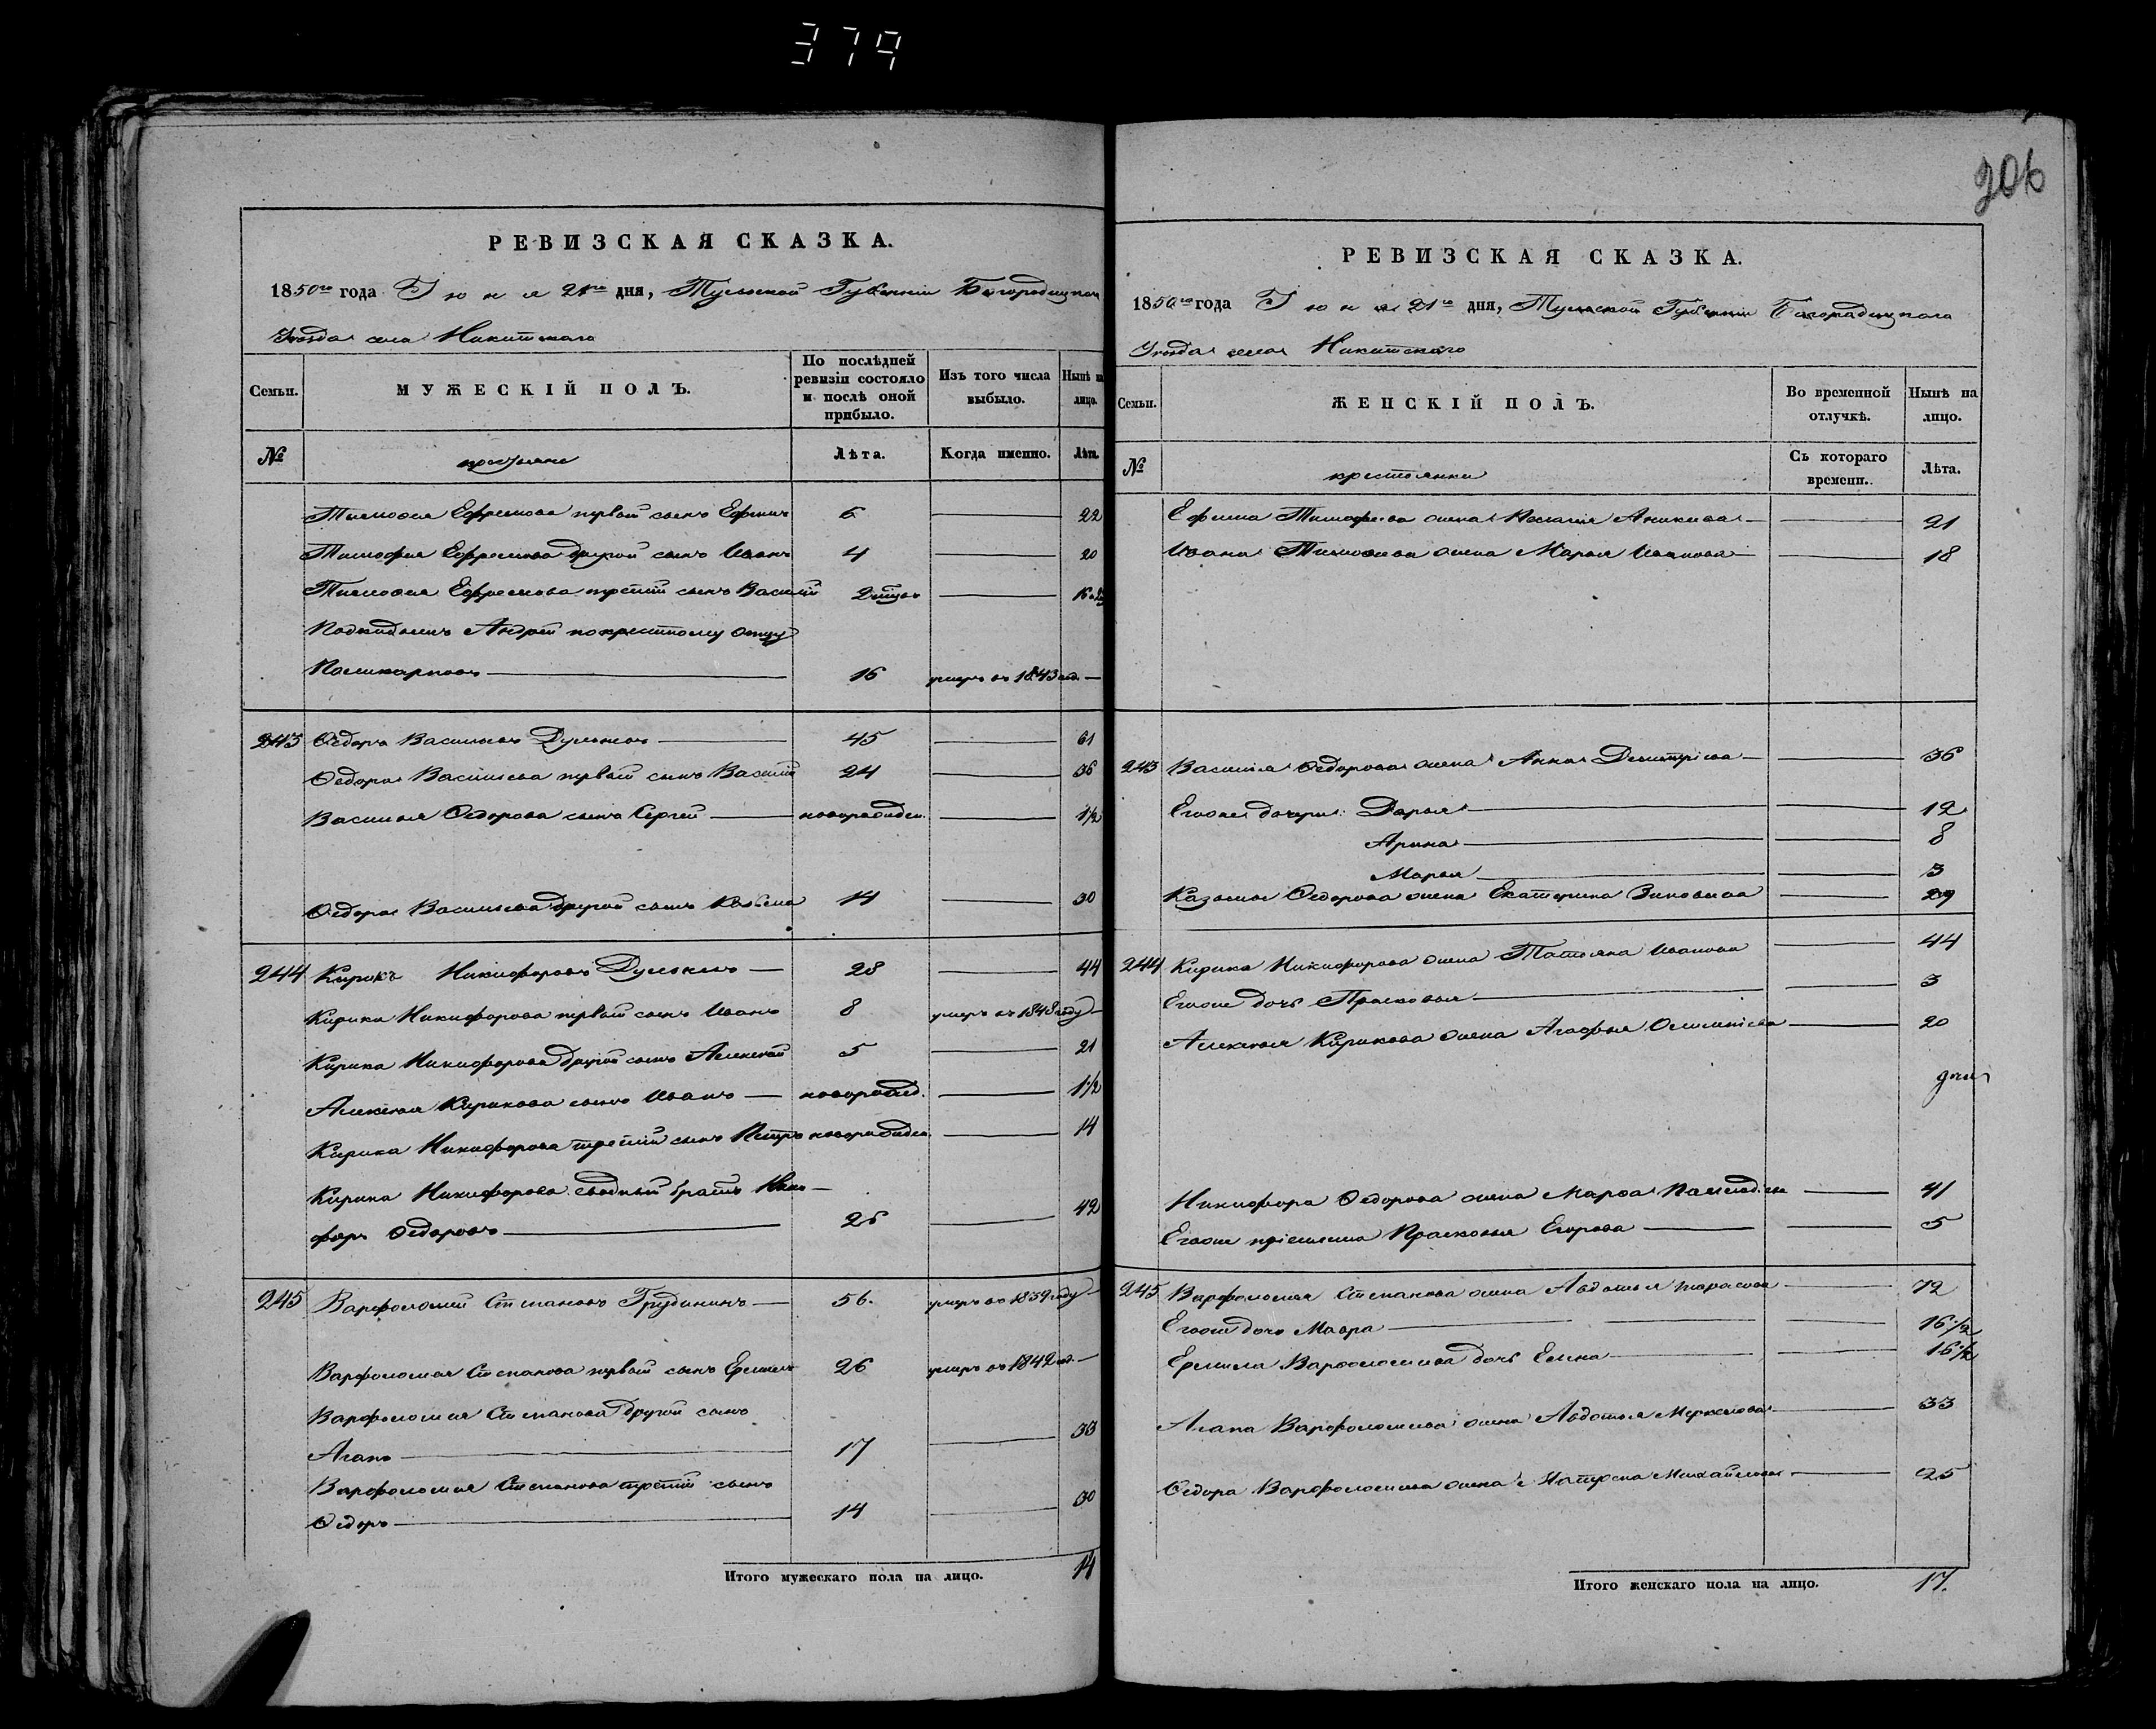 379
206
РЕВИЗСКАЯ СКАЗКА.
1850го года Іюня 21го дня, Тульской Губерніи Богородицкаго
Уезда села Никитскаго
Семьи.
МУЖЕСКІЙ ПОЛЪ.
По послѣдней ревизіи состояло и послѣ оной прибыло.
Изъ того числа выбыло.
Нынѣ на лицо.
№
крестьяне
Лѣта.
Когда именно.
Лѣта.
Тимофея Ефремова первый сынъ Ефимъ 6 — 22
Тимофея Ефремова другой сынъ Иванъ 4 — 20
Тимофея Ефремова третий сынъ Василій 2 — 16
Подкидышъ Андрей по крестному отцу
Поликарповъ — 16 умеръ въ 1843 год. —
243 Ѳедоръ Васильевъ — 45 — 61
Ѳедора Васильева первый сынъ Василій 24 — 36
Василья Ѳедорова сынъ Сергей — новорожден. — 1½
Ѳедора Васильева другой сынъ Козьма 14 — 30
244 Кирикъ Никифоровъ — 28 — 44
Кирика Никифорова первый сынъ Иванъ 8 умеръ въ 1848 году —
Кирика Никифорова другой сынъ Алексей 5 — 21
Алексея Кирикова сынъ Иванъ —новорожд. — 1½
Кирика Никифорова третій сынъ Петръ новорожден. — 14
Кирика Никифорова сводный братъ Ники—
форъ Ѳедоровъ — 26 — 42
245 Варфоломей Степановъ Грудининъ — 56. умеръ въ 1839 году —
Варфоломея Степанова первый сынъ Ермилъ 26 умеръ въ 1842 год. —
Варфоломея Степанова другой сынъ
Агапъ — 17 — 33
Варфоломея Степанова третій сынъ
Ѳедоръ — 14 — 30
Итого мужескаго пола на лицо. 14
РЕВИЗСКАЯ СКАЗКА.
1850го года Іюня 21го дня, Тульской Губерніи Богородицкаго
Уезда села Никитскаго
Семьи.
ЖЕНСКІЙ ПОЛЪ.
Во временной отлучкѣ.
Нынѣ на лицо.
№
крестьянки
Съ котораго времени.
Лѣта.
Ефима Тимофеева жена Аникева — 21
Ивана Тимофеева жена Марья Иванова — 18
243 Василія Ѳедорова жена Анна Дмитріева — 36
Егоже дочери: Дарья — 12
Арина — 8
Марья — 3
Казьмы Ѳедорова жена Екатерина Зиновьева — 29
244 Кирика Никифорова жена Татьяна Иванова — 44
Егоже дочь Прасковья — 3
Алексея Кирикова жена Агафья — 20
Никифора Ѳедорова жена Марѳа — 41
Егоже пріемыша Прасковья Егорова — 5
245 Варфоломея Степанова жена Авдотья Тарасова — 72
Егоже дочь Мавра — 16½
Ермила Варѳоломеева дочь Елена — 16½
Агапа Варфоломеева жена Авдотья Меркелова — 33
Ѳедора Варфоломеева жена Матрена Михайлова — 25
Итого женскаго пола на лицо. 17.